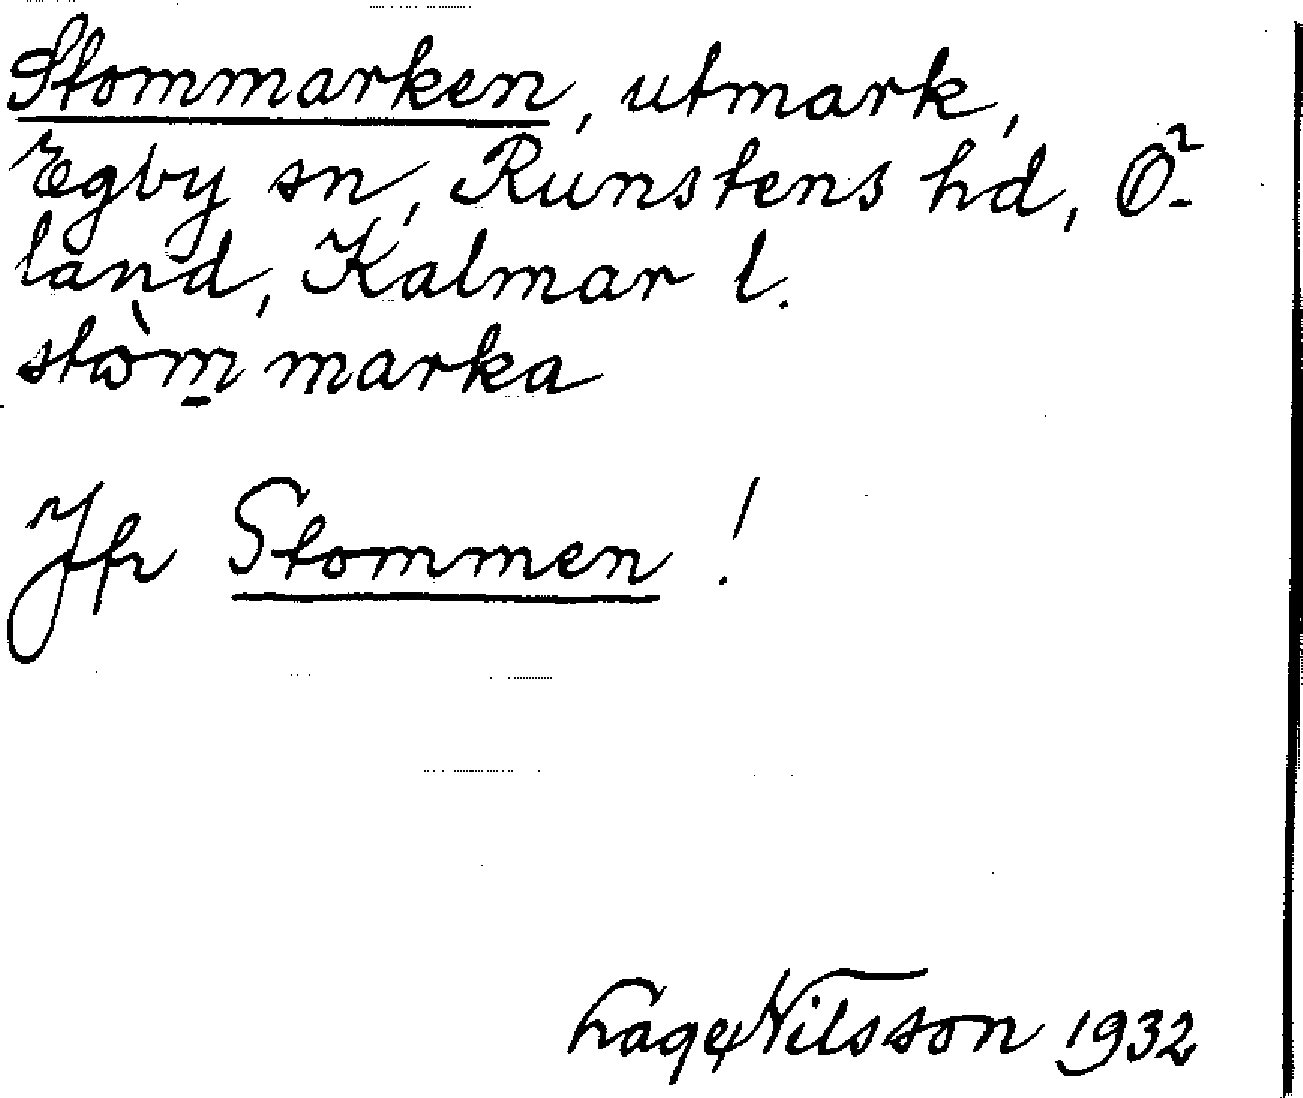 Stommarken, utmark,
Egby sn, Runstens hd, Ö-
land, Kalmar l.
stòm̱marka
Jfr Stommen!
Nilsson 1932